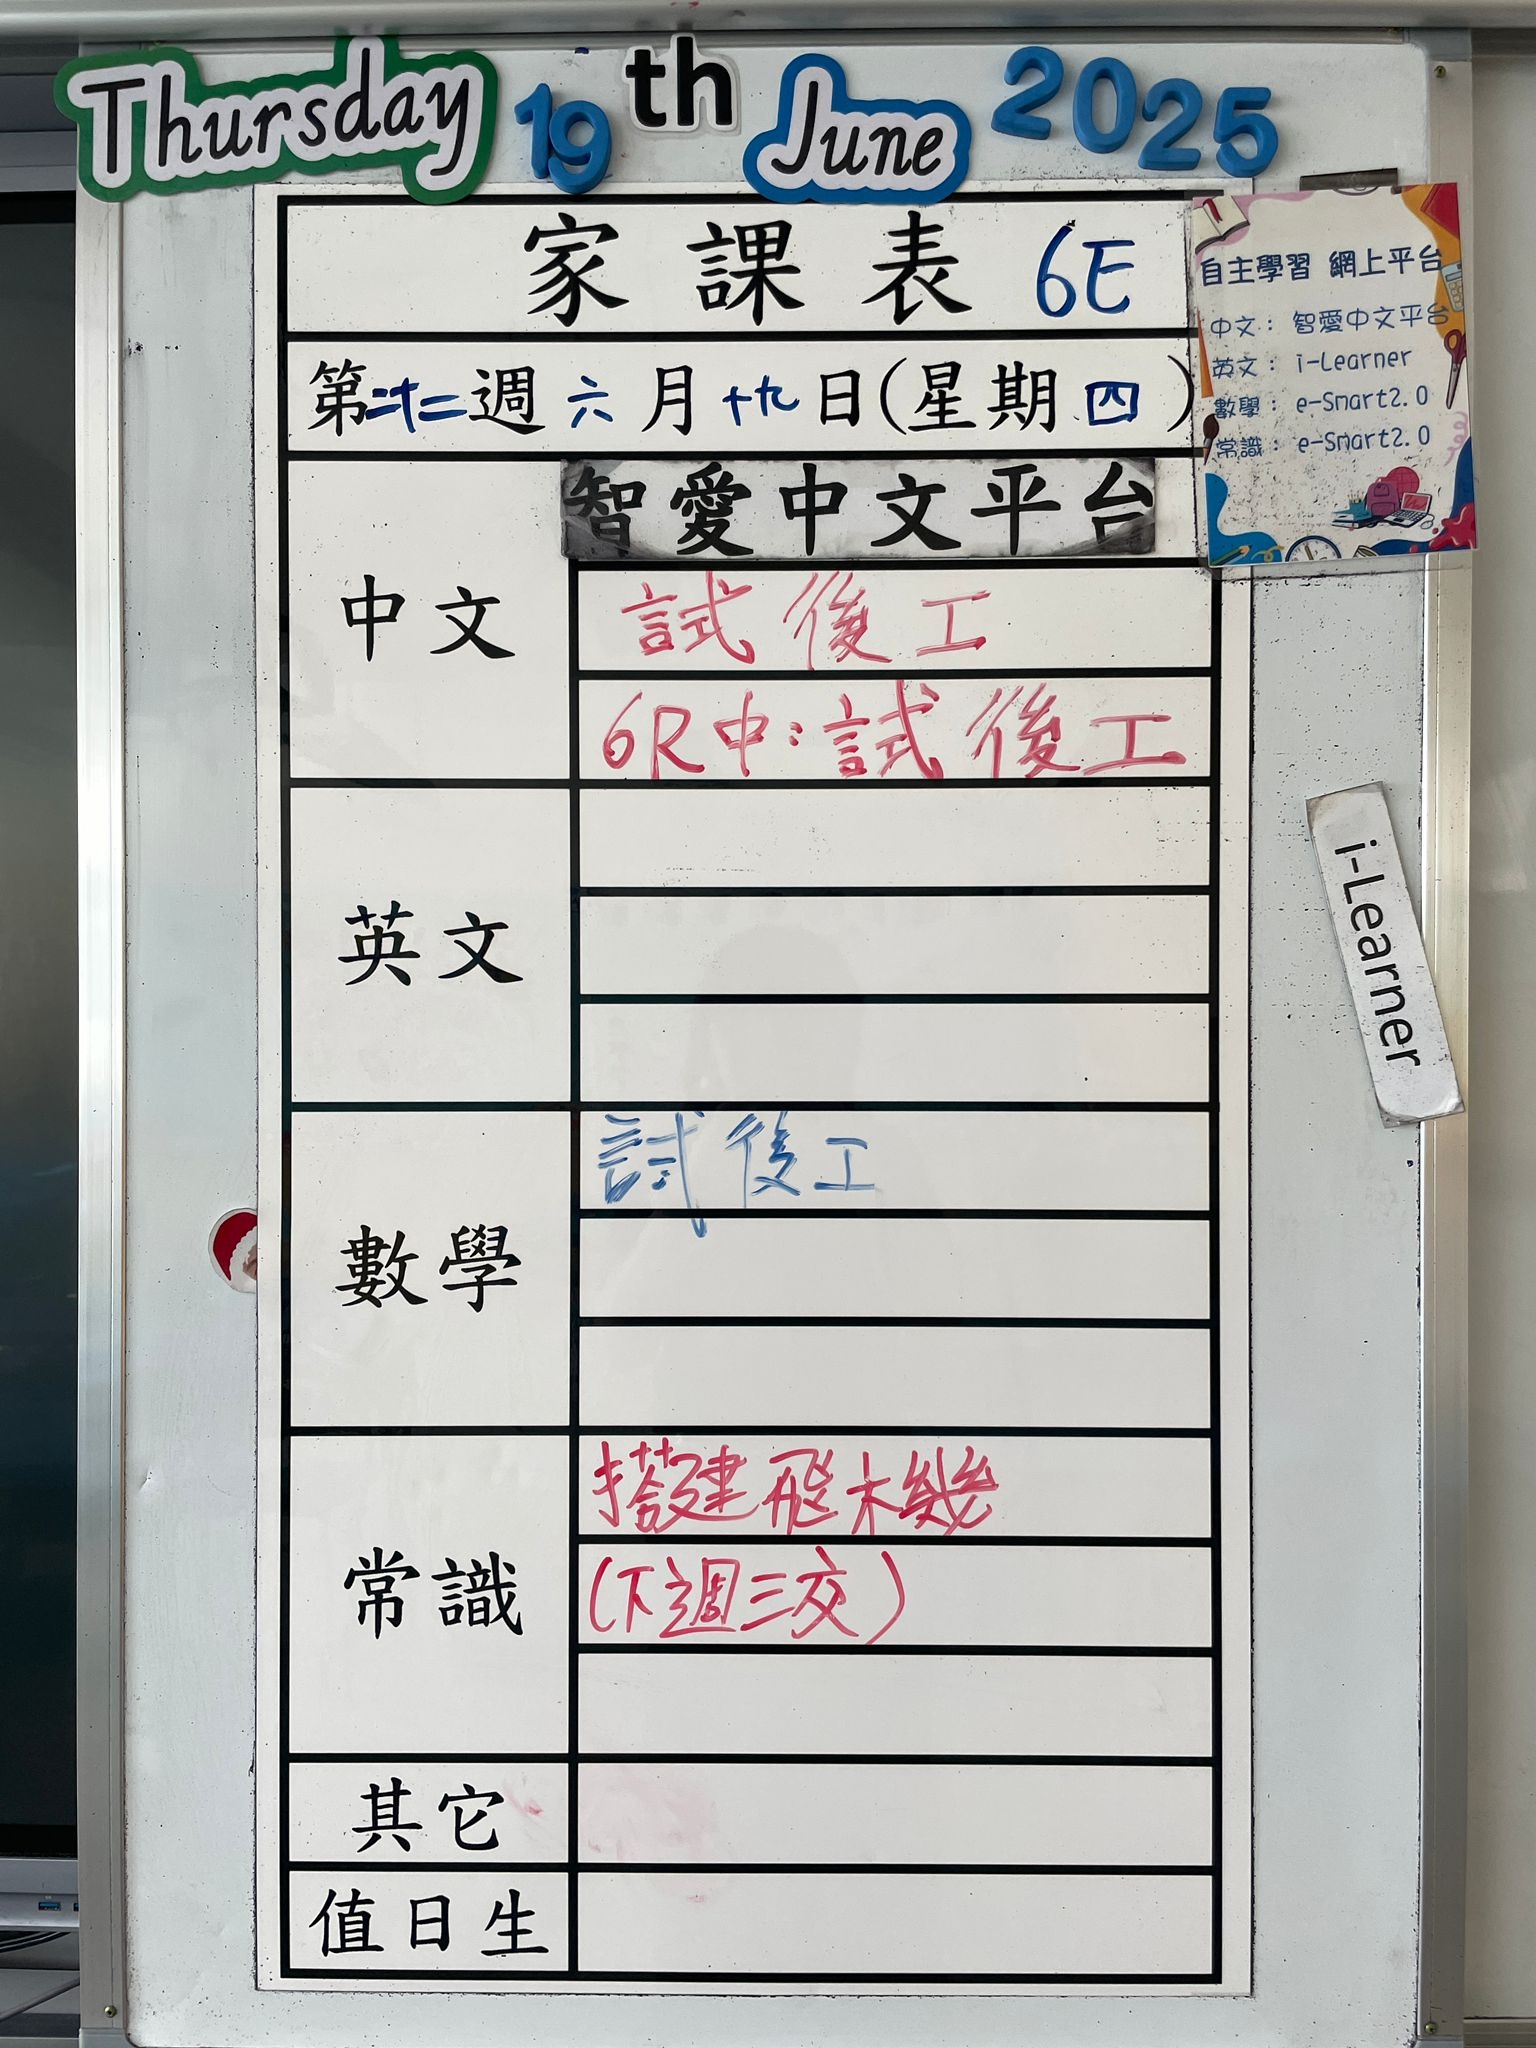 Thursday 19th June 2025
家課表 6E
第二十二週 六月十九日(星期四)
自主學習 網上平台
中文： 智愛中文平台
英文： i-Learner
數學： e-Smart2.0
常識： e-Smart2.0
中文
智愛中文平台
試後工
6R中:試後工
英文
i-Learner
數學
試後工
常識
搭建飛機
(下週三交)
其它
值日生